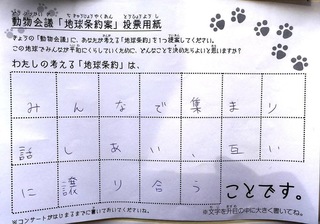 動物会議「地球条約案」投票用紙
きょうの「動物会議」に、あなたが考える「地球条約」を1つ提案してください。
この地球でみんなが平和にくらしていくために、どんなことを決めたらよいと思いますか?
わたしの考える「地球条約」は、
みんなで集まり
話しあい、互い
に譲り合うことです。
※コンサートがはじまるまでに書いておいてくださいね。
※文字を升目の中に大きく書いてね。